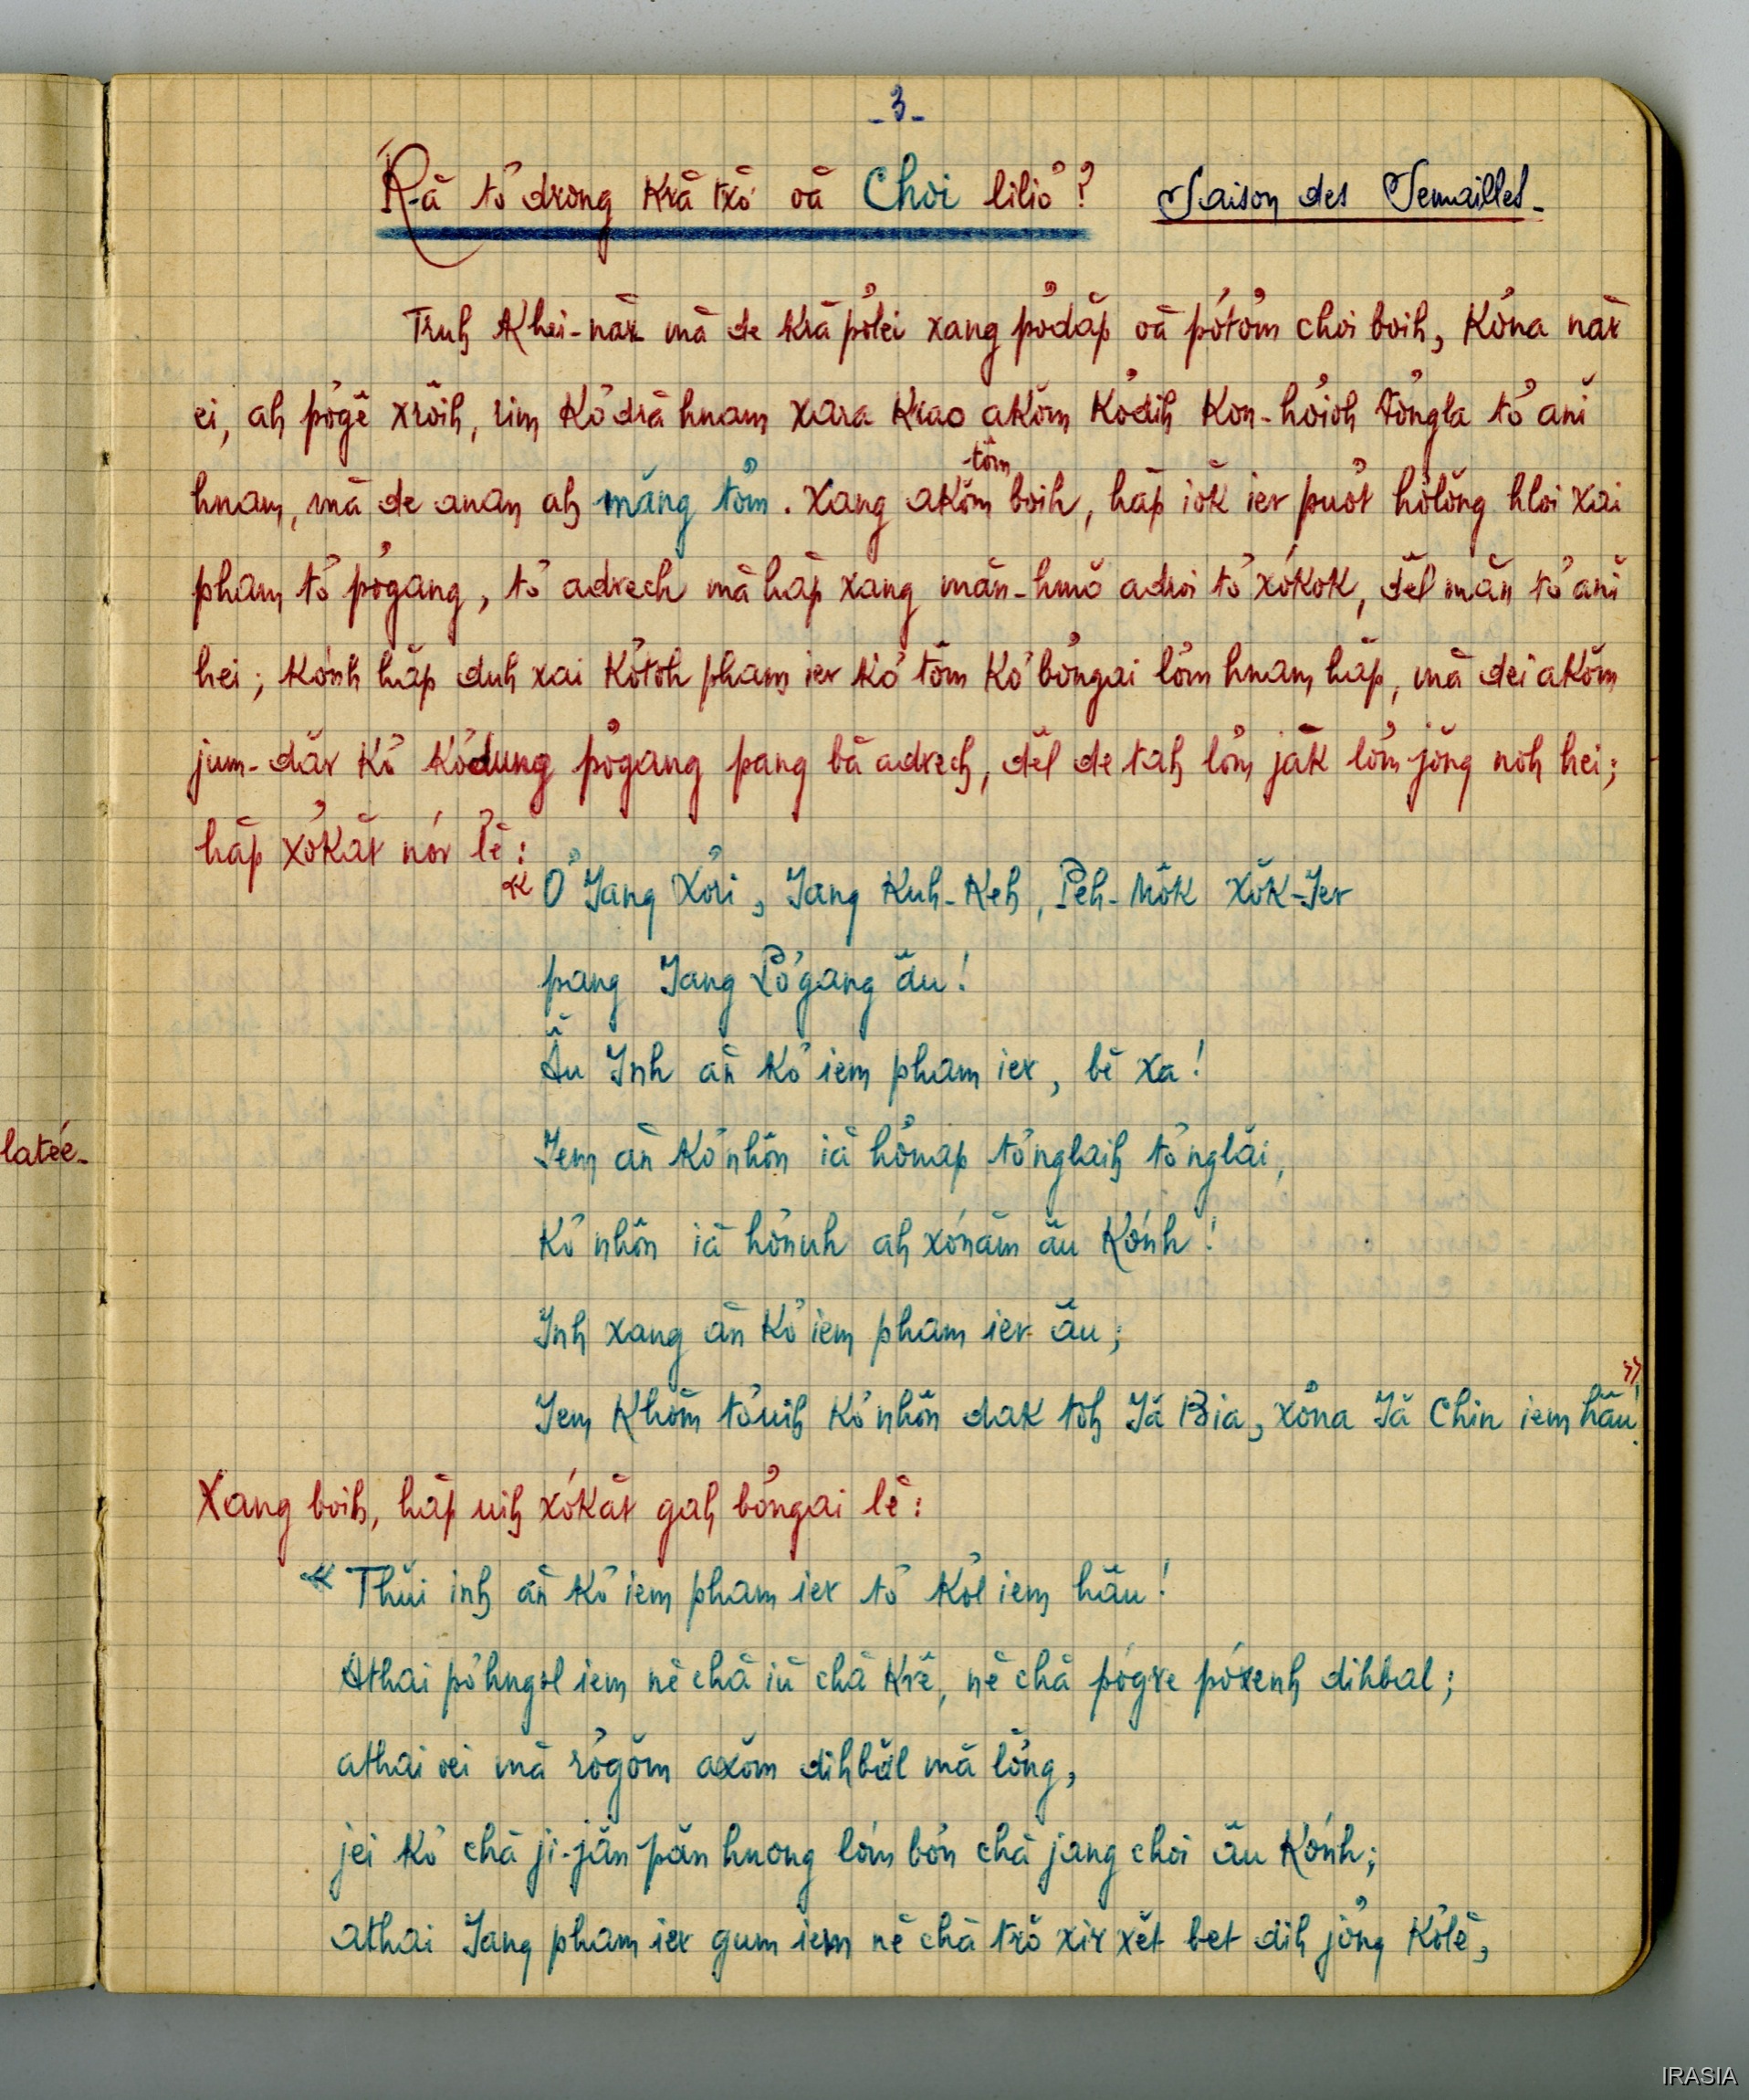 -3-
Ră tơ̆ drong Kră txơ̆ oă Choi liliơ? Saison des Semailles-
Truh Khei-năr mă de Kră pơlei xang pơdăp oă pơtơm choi boih, Kơna năr
ei, ah pơgê xrôih, rim Kơdră hnam xara Krao akŏm Kơdih Kon-hơioh tơngla tơ̆ anĭ
hnam, mă de anan ah măng tơm. Xang akŏm-tŏm boih, hăp iŏk ier puơt hơlŏng hloi xai
pham tơ̆ pơgang, tơ̆ adrech mă hăp xang măn-hmă adroi tơ̆ xơkok, dĕl măn tơ̆ anĭ
hei; kơnh hăp duh xai Kơtoh pham ier kơ tŏm kơ bơngai lơm hnam hăp, mă dei akŏm
jum-dăr Kơ kơdung pơgang pang bă adrech, dĕl de tah lơm jăk lơm jŏng noh hei;
hăp xơkăt nơr lĕ:
« Ơ Jang Xơri, Jang Kuh-Keh, Peh-Mŏk Xŏk-Jer
pang Jang Pơgang ău!
Ău Inh ăn kơ iem pham ier, bĕ xa!
Iem ăn kơ nhôn iă hơmap tơnglaih tơnglăi,
Kơ nhôn iă hơnuh ah xơnăm ău Kơnh!
Inh xang ăn Kơ iem pham ier ău;
Iem Khŏm tơuih Kơ nhôn dak toh Jă Bia, xơna Jă Chin iem hău! »
Xang boih, hăp uih xơkăt gah bơngai lĕ:
« Thŭi inh ăn Kơ iem pham ier tơ̆ kơl iem hău!
Athai pơhngol iem nĕ chă iŭ chă Krĕ, nĕ chă pơgre pơrenh dihbal;
athai oei mă rơgŏm axŏm dihbăl mă lơ̆ng,
jei kơ chă ji-jăn păn hnong lơm bơn chă jang choi ău Kơnh;
athai Jang pham ier gum iem nĕ chă trŏ xir xĕt bet dih jơ̆ng Kơlĕ,
latée-
IRASIA